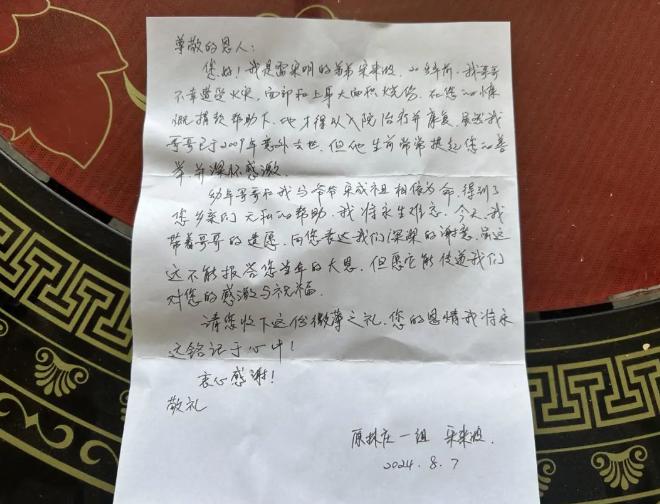 尊敬的恩人：
您好！我是雷宋明的弟弟宋来波，20多年前，我哥哥
不幸遭受火灾，面部和上身大面积烧伤。在您的慷
慨捐款帮助下，他才得以入院治疗并康复。虽然我
哥哥已于2009年意外去世，但他生前常常提起您的善
举并深怀感激。
幼年哥哥和我与爷爷宋成祖相依为命，得到了
您乡亲们无私的帮助，我将永生难忘。今天，我
带着哥哥的遗愿，向您表达我们深深的谢意。虽远
远不能报答您当年的大恩，但愿它能传递我们
对您的感激与祝福。
请您收下这份微薄之礼，您的恩情我将永
远铭记于心中！
衷心感谢！
敬礼
原林庄一组 宋来波
2024.8.7